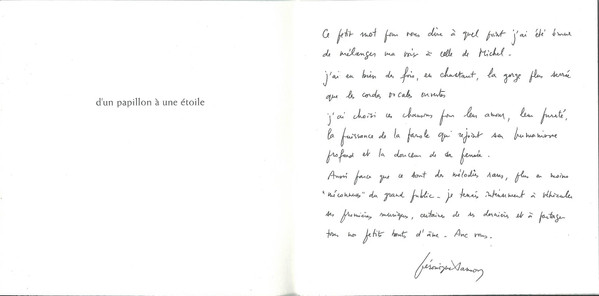 d'un papillon à une étoile
Ce petit mot pour vous dire à quel point j'ai été émue
de mélanger ma voix à celle de Michel.
j'ai eu bien des fois, en chantant, la gorge plus serrée
que les cordes vocales ouvertes
j'ai choisi ces chansons pour leur amour, leur pureté,
la puissance de la parole qui rejoint son humanisme
profond et la douceur de sa pensée.
Aussi parce que ce sont des mélodies rares, plus ou moins
"méconnues" du grand public. je tenais intensément à véhiculer
ses premières musiques, certaines de ses dernières et à partager
tous nos petits bouts d'âme. Avec vous.
Véronique Sanson